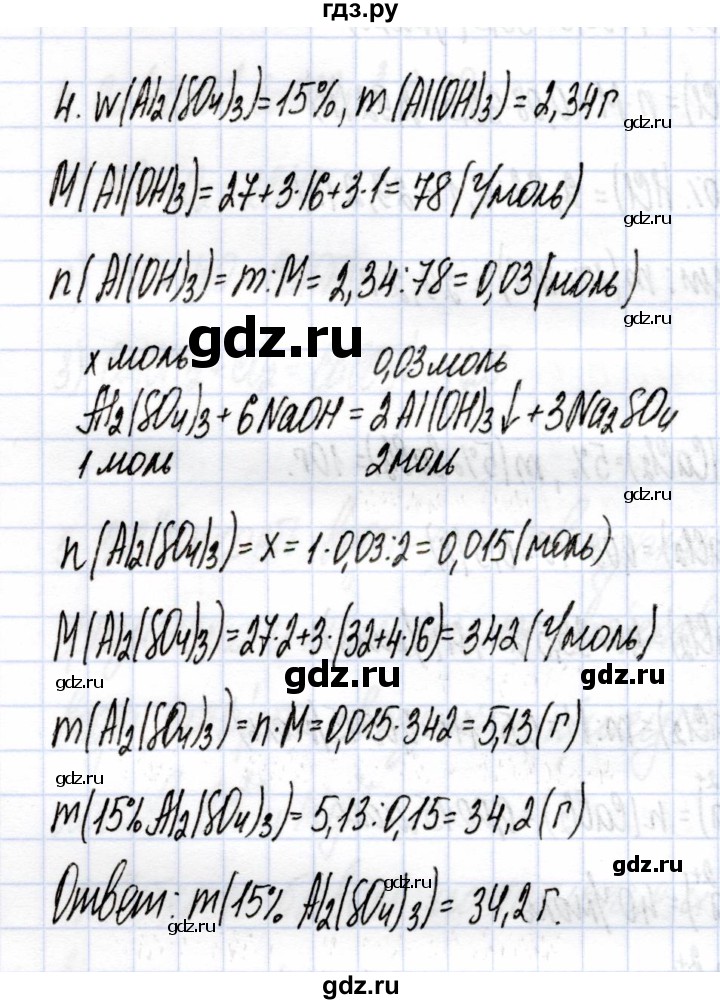 гдз.ру
4. w(Al₂(SO₄)₃)=15%, m(Al(OH)₃)=2,34г
gdz.ru
M(Al(OH)₃)=27+3·16+3·1=78(г/моль)
gdz.ru
n(Al(OH)₃)=m:M=2,34:78=0,03(моль)
gdz.ru
gdz.ru
x моль 0,03моль
Al₂(SO₄)₃+6NaOH=2Al(OH)₃↓+3Na₂SO₄
1 моль 2моль
gdz.ru
n(Al₂(SO₄)₃)=x=1·0,03:2=0,015(моль)
gdz.ru
M(Al₂(SO₄)₃)=27·2+3·(32+4·16)=342(г/моль)
gdz.ru gdz.ru gdz.ru
m(Al₂(SO₄)₃)=n·M=0,015·342=5,13(г)
gdz.ru
m(15%Al₂(SO₄)₃)=5,13:0,15=34,2(г)
gdz.ru
gdz.ru
Ответ: m(15% Al₂(SO₄)₃)=34,2г.
gdz.ru
gdz.ru